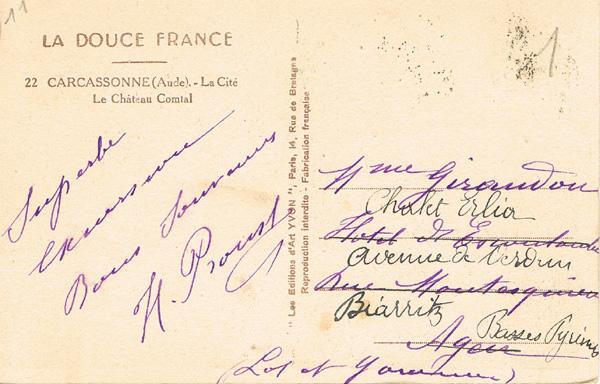 11
1
LA DOUCE FRANCE
22 CARCASSONNE (Aude). - La Cité
Le Château Comtal
Superbe
excursion
Bons Souvenirs
H. Proust
" Les Editions d'Art YVON ", Paris, 14, Rue de Bretagne
Reproduction interdite - Fabrication française
Mme Girandou
Chalet Erlia
Hotel d'
Avenue de Verdun
Rue Montesquieu
Biarritz
Basses Pyrénées
Agen
(Lot et Garonne)